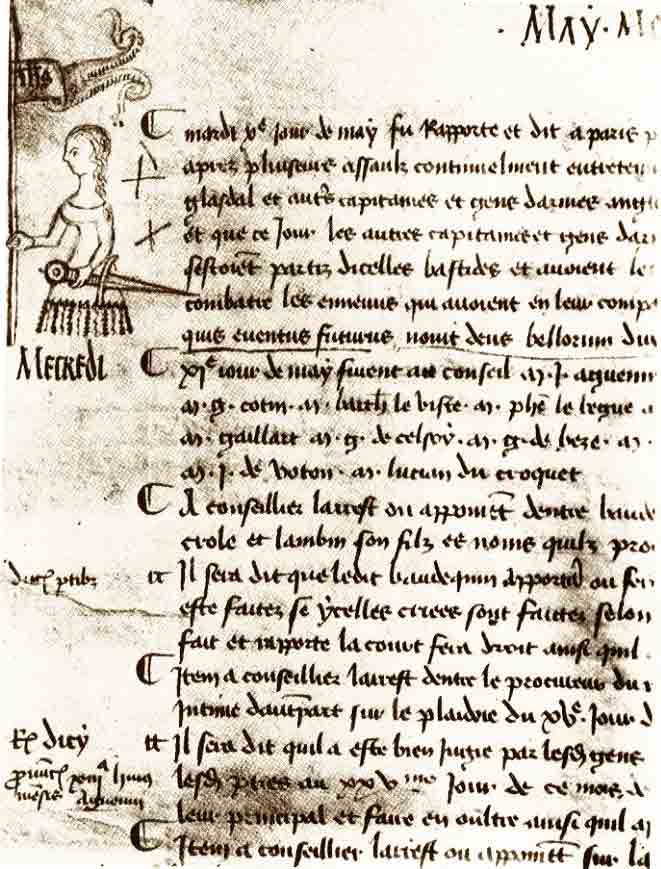 May . M
ihs
mardi xe jour de may fu Rapporte et dit a paris p
apres pluseurs assaulz continuelment entreten
glasdal et autres capitaines et gens darmes angl
et que ce Jour les autres capitaines et gens dar
sestoient partiz dicelles bastides et avoient le
combatre les ennemis qui avoient en leur comp
quis eventus futurus novit deus bellorum du
MECREDI
xje iour de may furent au conseil m. J. aguenin
m. g. cotin . m. barth le viste . m. phe le begue
m. gaillart m. g. de celsoy . m. g. de beze . m.
m. J. de voton . m. lucian du croquet
A conseillier larrest ou appoinctement dentre baude
crole et lambin son filz es noms quilz pro
Il sera dit que ledit baudequin apportera ou fer
este faites se ycelles criees sont faites selon
fait et rapporte la court fera droit ainsi quil
Item a conseillier larrest dentre le procureur du r
Intimé dautre part sur le plaidoie du xve. Jour d
Il sera dit quil a este bien jugie par lesd gens
lesd parties au xxvme Jour de ce mois de
leur principal et faire en oultre ainsi quil
Item a conseillier larrest ou appoinctement sur la